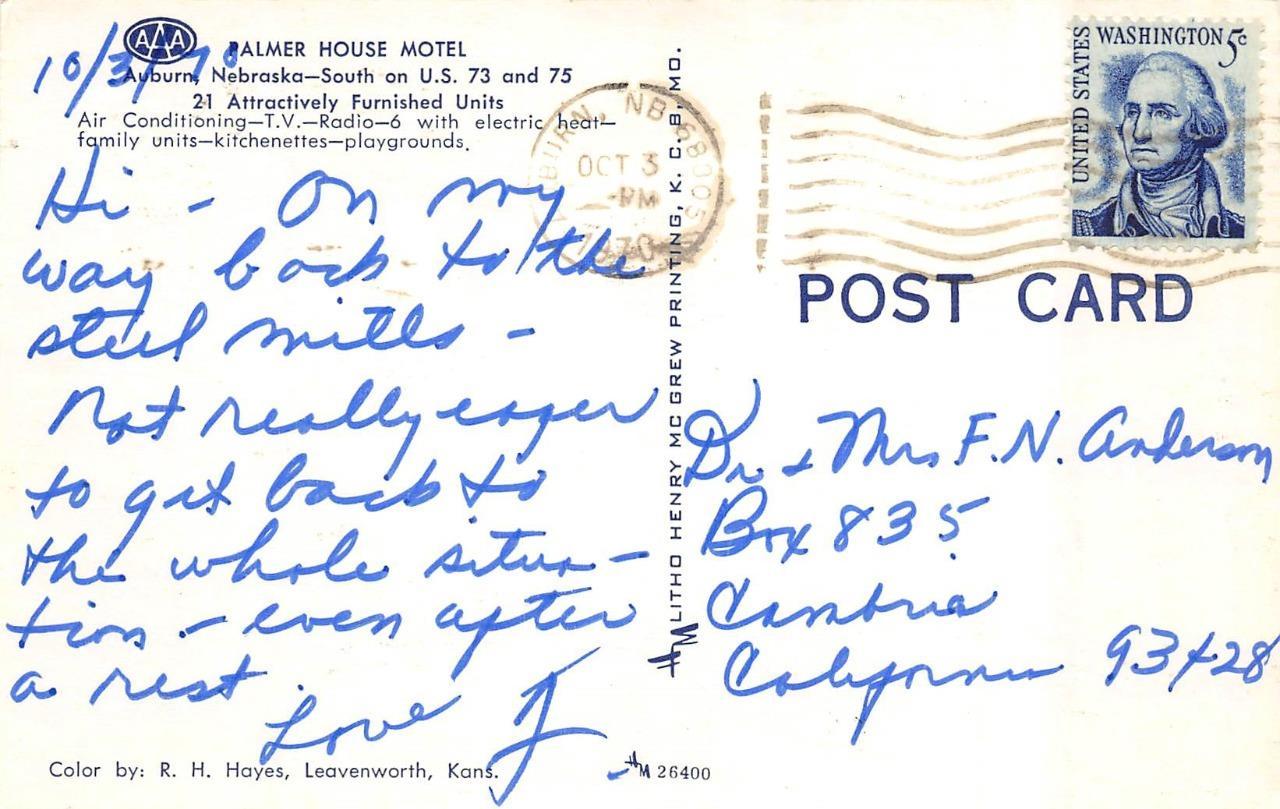 AAA
PALMER HOUSE MOTEL
10/3/70
Auburn, Nebraska—South on U.S. 73 and 75
21 Attractively Furnished Units
Air Conditioning—T.V.—Radio—6 with electric heat—
family units—kitchenettes—playgrounds.
Hi - On my
way back to the
steel mills -
Not really eager
to get back to
the whole situa-
tion - even after
a rest.
Love J
Color by: R. H. Hayes, Leavenworth, Kans.
HM 26400
HM LITHO HENRY MC GREW PRINTING, K. C. 8, MO.
BURN, NB 68305
OCT 3
PM
1970
UNITED STATES
WASHINGTON 5c
POST CARD
Dr & Mrs F.N. Anderson
Box 835
Cambria
California 93428